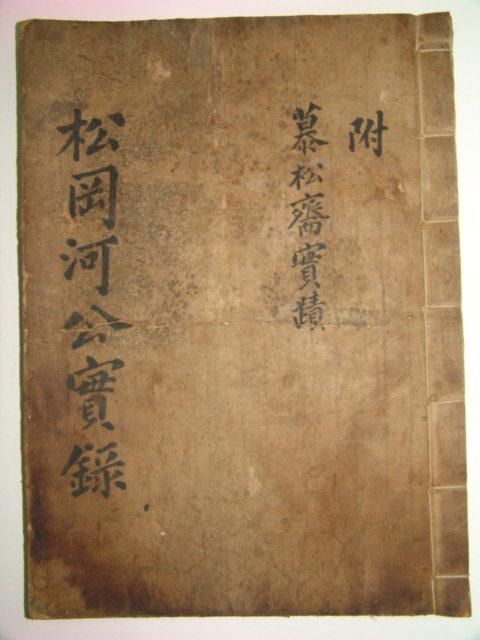 附
慕松齋實蹟
松岡河公實錄